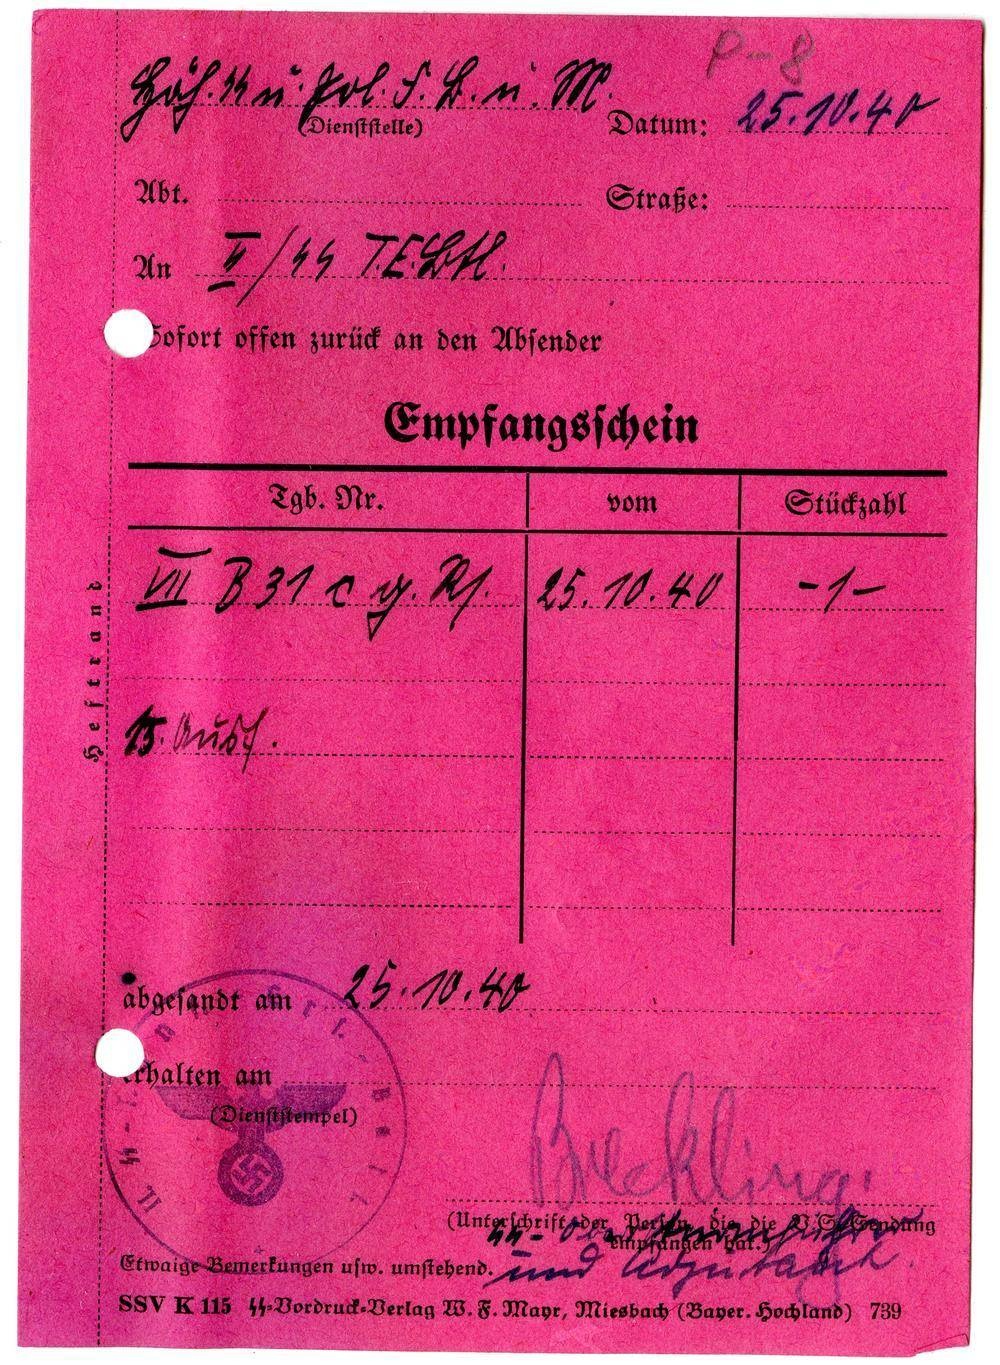 P-8
Höh. SS u. Pol. F. B. u. M.
(Dienststelle)
Datum: 25.10.40
Abt. Straße:
An II/SS T.E.Btl.
Sofort offen zurück an den Absender
Empfangsschein
Tgb. Nr. vom Stückzahl
VII B 31 c g. Rs. 25.10.40 -1-
15. Ausf.
Heftrand
abgesandt am 25.10.40
erhalten am
(Dienststempel)
(Unterschrift der Person, die die V.S. Sendung
empfangen hat.)
SS-Obersturmführer
und Adjutant.
Etwaige Bemerkungen usw. umstehend.
SSV K 115 SS-Vordruck-Verlag W. F. Mayr, Miesbach (Bayer. Hochland) 739